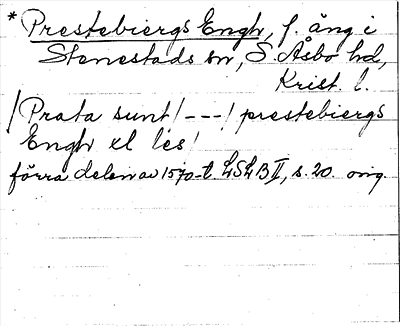 * Prestebiergs Engh, f. äng i
Stenestads sn, S. Åsbo hd,
Krist. l.
/Prata sunt/---/ prestebiergs
Engh xl les/
förra delen av 1570-t. LSLB II, s. 20. orig.